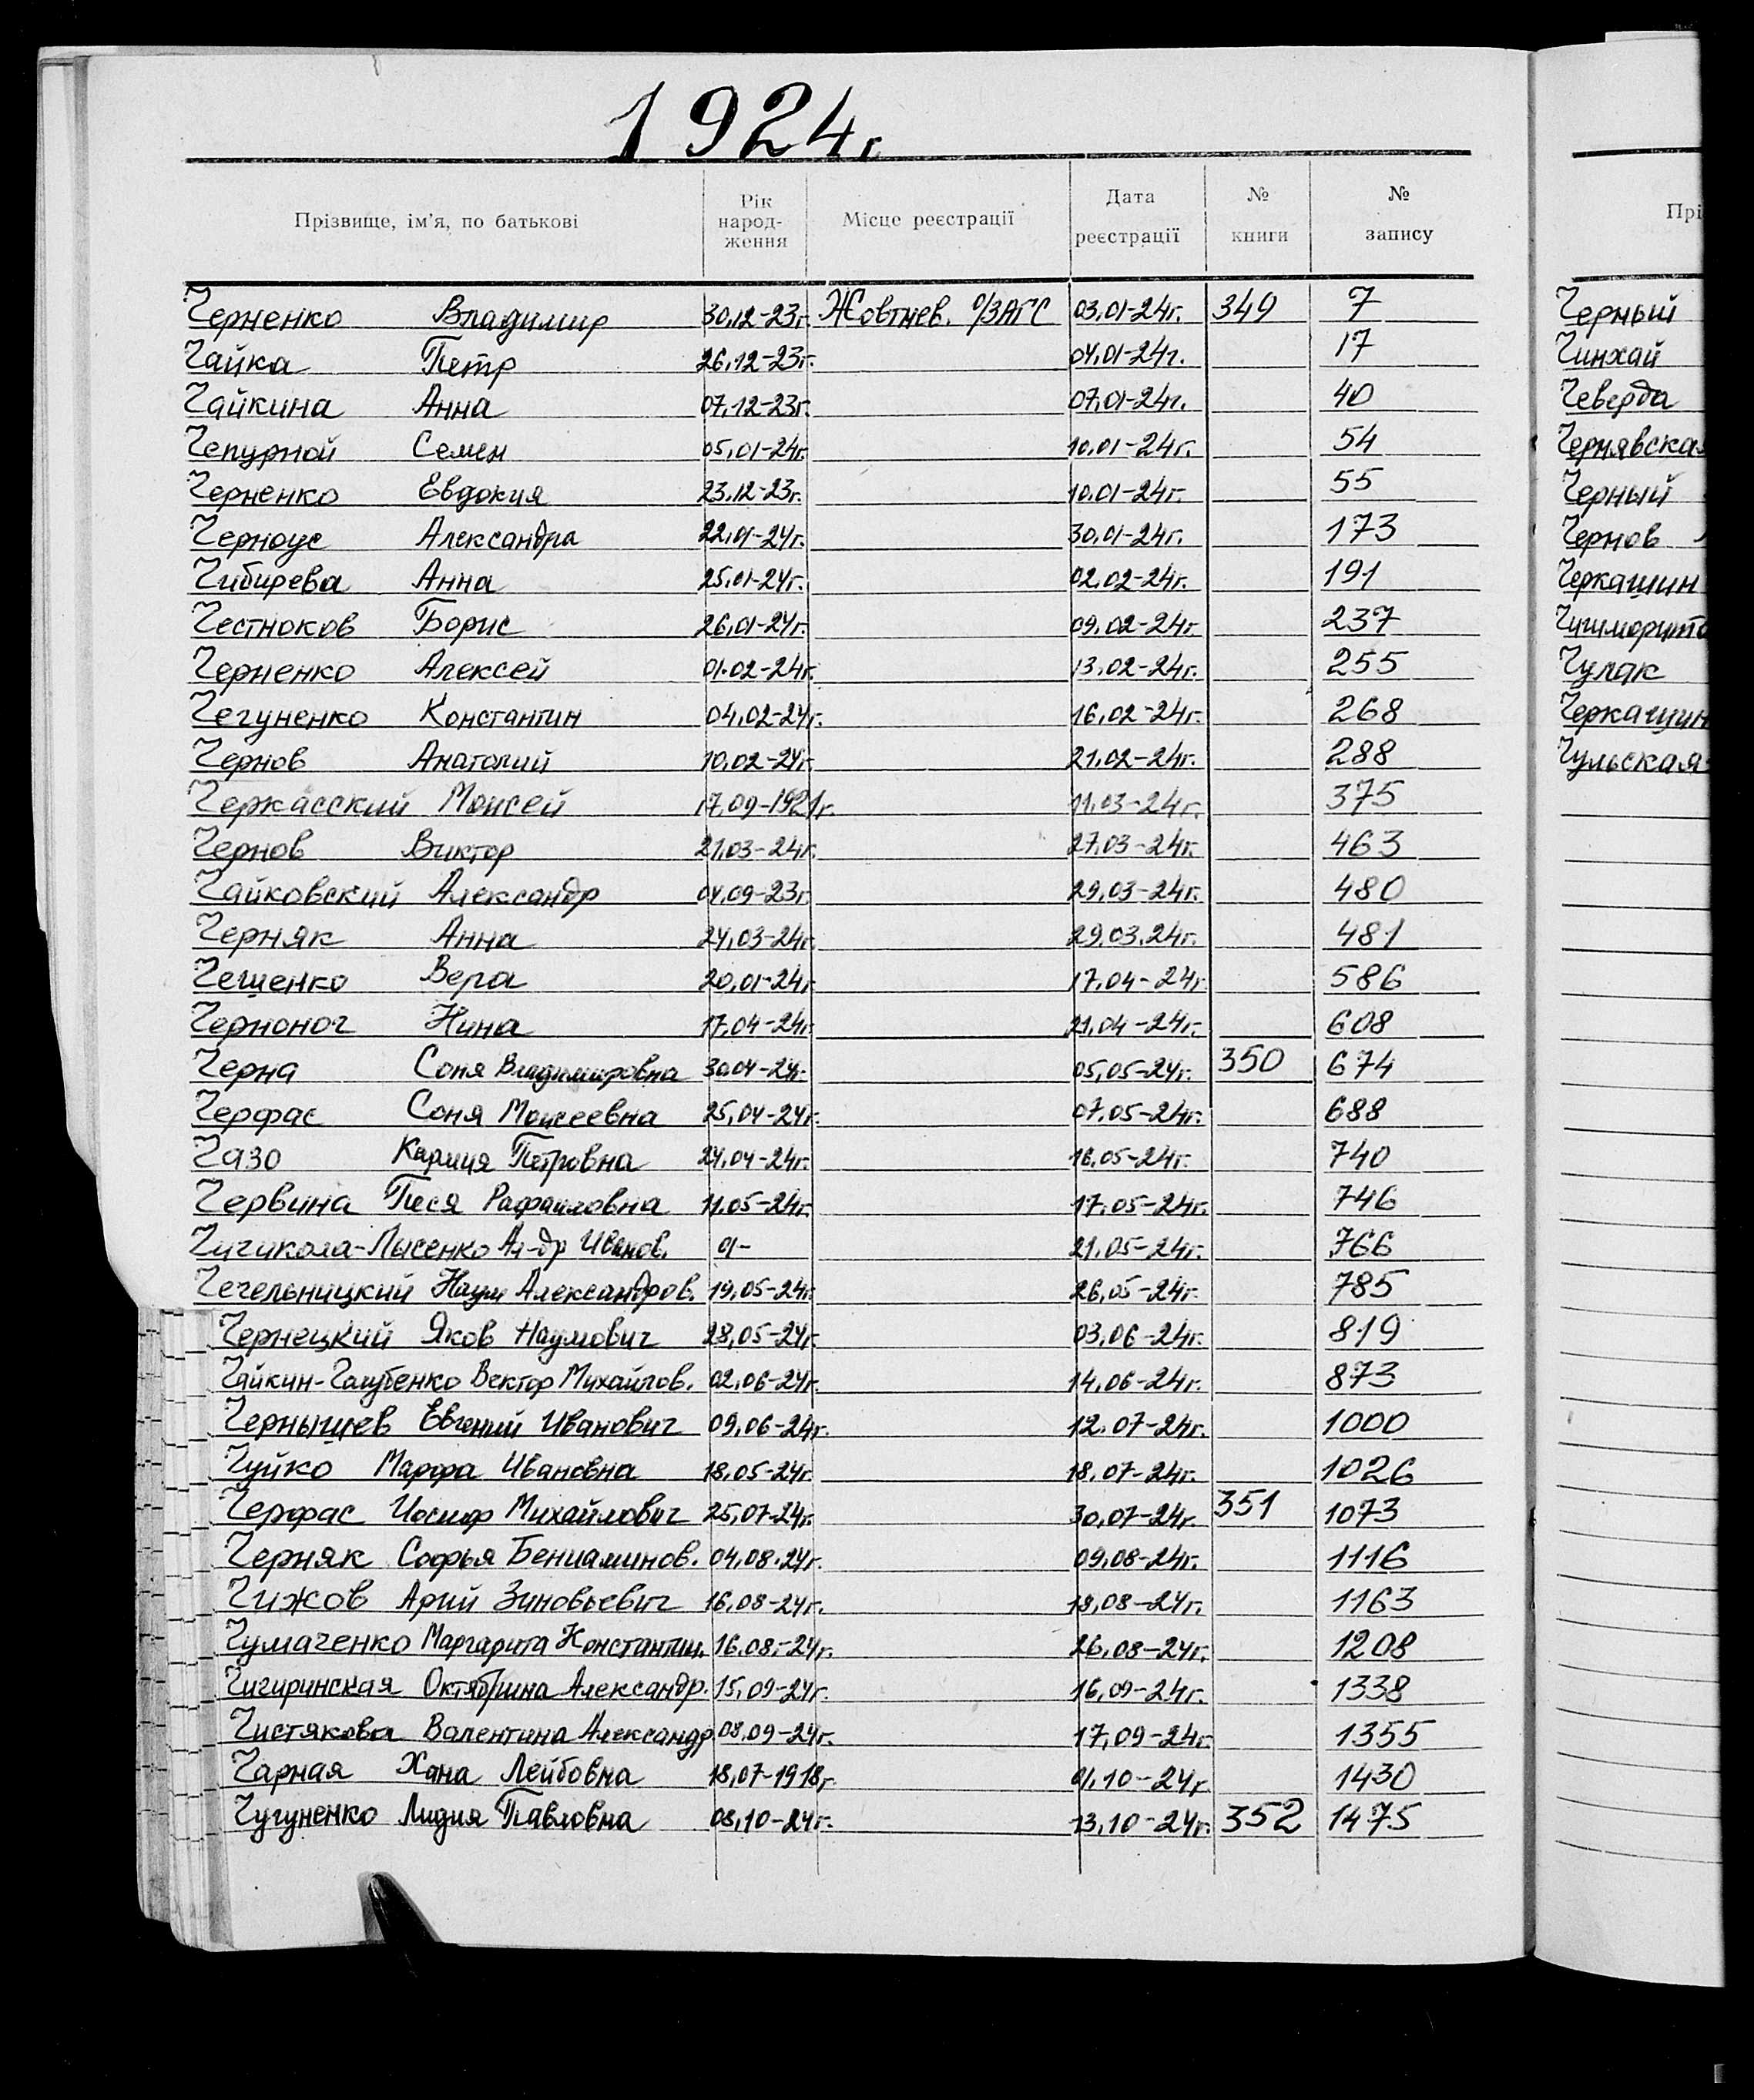 1924г.
Прізвище, ім'я, по батькові Рік народ- ження Місце реєстрації Дата реєстрації № книги № запису
Черненко Владимир 30.12-23г. Жовтнев. о/ЗАГС 03.01-24г. 349 7
Чайка Петр 26.12-23г. 04.01-24г. 17
Чайкина Анна 07.12-23г. 07.01-24г. 40
Чепурной Семен 05.01-24г. 10.01-24г. 54
Черненко Евдокия 23.12-23г. 10.01-24г. 55
Черноус Александра 22.01-24г. 30.01-24г. 173
Чибирева Анна 25.01-24г. 02.02-24г. 191
Честноков Борис 26.01-24г. 09.02-24г. 237
Черненко Алексей 01.02-24г. 13.02-24г. 255
Чегуненко Константин 04.02-24г. 16.02-24г. 268
Чернов Анатолий 10.02-24г. 21.02-24г. 288
Черкасский Моисей 17.09-1921г. 11.03-24г. 375
Чернов Виктор 21.03-24г. 27.03-24г. 463
Чайковский Александр 04.09-23г. 29.03-24г. 480
Черняк Анна 24.03-24г. 29.03.24г. 481
Чешенко Вера 20.01-24г. 17.04-24г. 586
Черноног Нина 17.04-24г. 21.04-24г. 608
Черна Соня Владимировна 30.04-24г. 05.05-24г. 350 674
Черфас Соня Моисеевна 25.04-24г. 07.05-24г. 688
Чазо Петровна 24.04-24г. 16.05-24г. 740
Червина Песя Рафаиловна 11.05-24г. 17.05-24г. 746
Чичикола-Лысенко Ал-др Иванов. 01- 21.05-24г. 766
Чечельницкий Наум Александров. 19.05-24г. 26.05-24г. 785
Чернецкий Яков Наумович 28.05-24г. 03.06-24г. 819
Чайкин-Голубенко Вектор Михайлов. 02.06-24г. 14.06-24г. 873
Чернышев Евгений Иванович 09.06-24г. 12.07-24г. 1000
Чуйко Марфа Ивановна 18.05-24г. 18.07-24г. 1026
Черфас Иосиф Михайлович 25.07-24г. 30.07-24г. 351 1073
Черняк Софья Бениаминов. 04.08.24г. 09.08-24г. 1116
Чижов Арий Зиновьевич 16.08-24г. 18.08-24г. 1163
Чумаченко Маргарита Константин. 16.08.-24г. 26.08-24г. 1208
Чигиринская Октябрина Александр. 15.09-24г. 16.09-24г. 1338
Чистякова Валентина Александр. 08.09-24г. 17.09-24г. 1355
Чарная Хана Лейбовна 18.07-1918г. 01.10-24г. 1430
Чугуненко Лидия Павловна 08.10-24г. 13.10-24г. 352 1475
Прі
Черный
Чинхай
Чеверда
Чернявская
Черный
Чернов
Черкашин
Чулак
Черкашин
Чульская